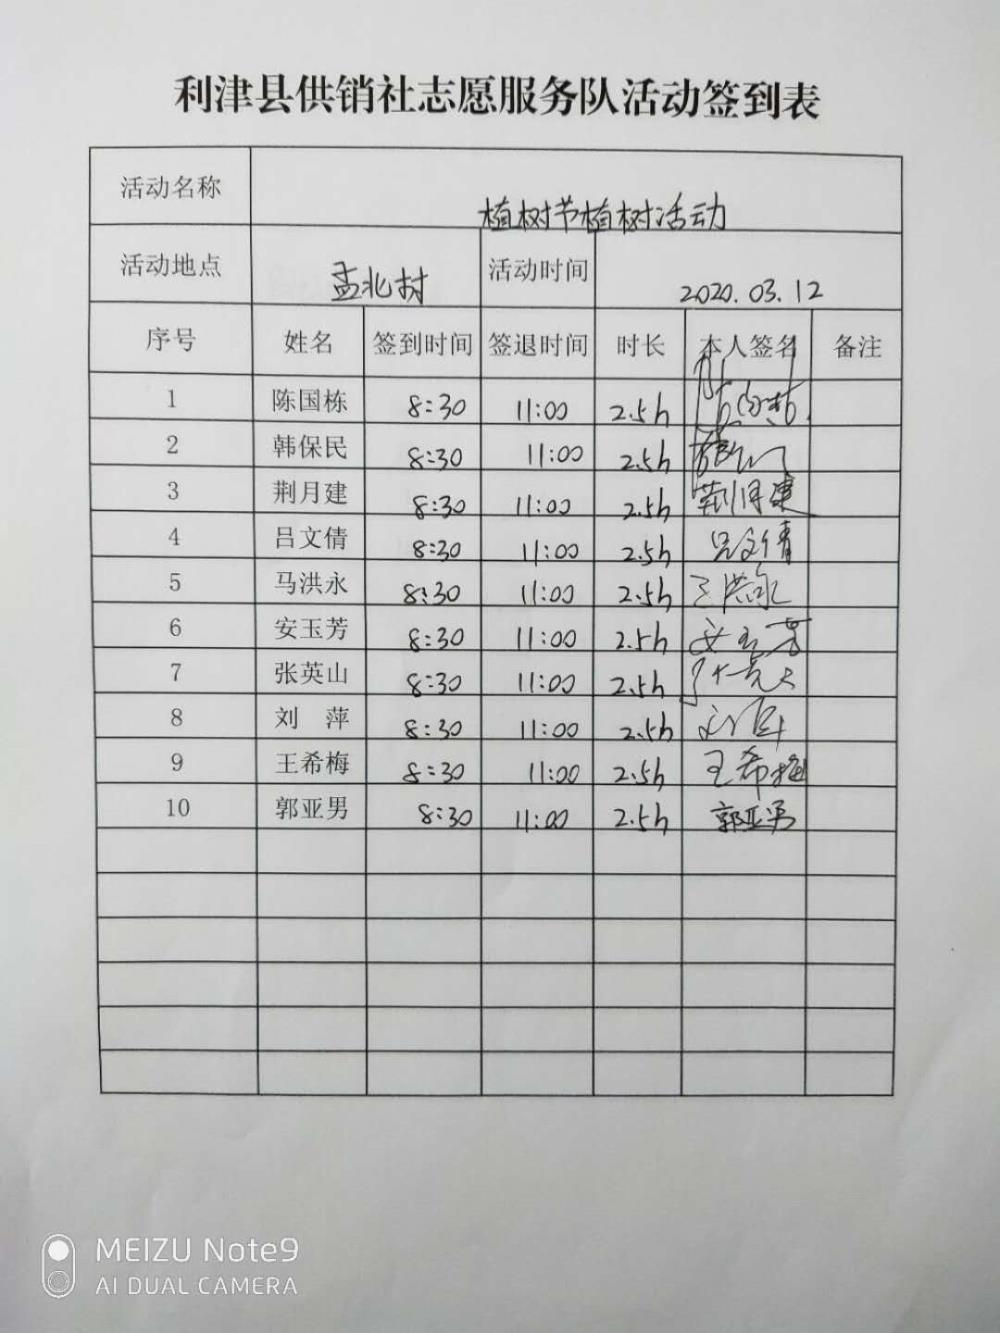 利津县供销社志愿服务队活动签到表
活动名称 植树节植树活动
活动地点 孟北村 活动时间 2020.03.12
序号 姓名 签到时间 签退时间 时长 本人签名 备注
1 陈国栋 8:30 11:00 2.5h 陈国栋
2 韩保民 8:30 11:00 2.5h
3 荆月建 8:30 11:00 2.5h 荆月建
4 吕文倩 8:30 11:00 2.5h 吕文倩
5 马洪永 8:30 11:00 2.5h 马洪永
6 安玉芳 8:30 11:00 2.5h 安玉芳
7 张英山 8:30 11:00 2.5h
8 刘 萍 8:30 11:00 2.5h 刘萍
9 王希梅 8:30 11:00 2.5h 王希梅
10 郭亚男 8:30 11:00 2.5h 郭亚男
MEIZU Note9
AI DUAL CAMERA